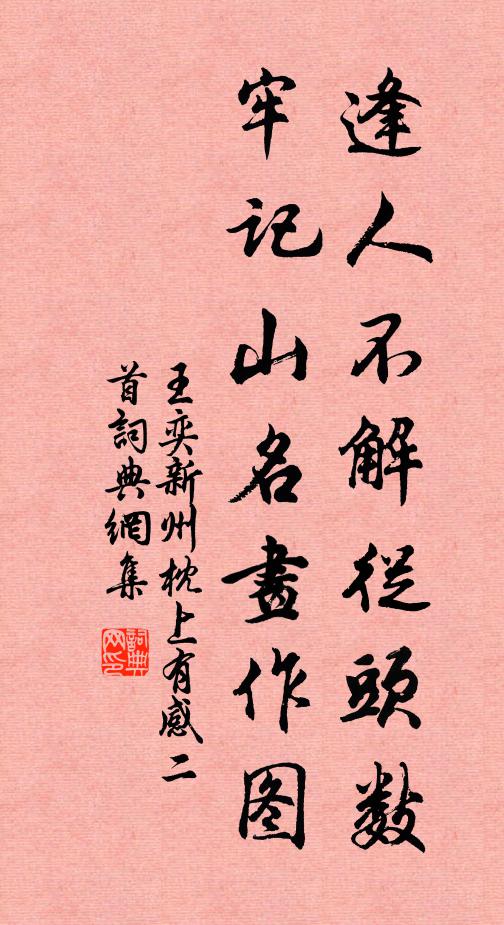 逢人不解從頭數
牢记山名畫作图
王奕新州枕上有感二
首詞典網集
詞典网印